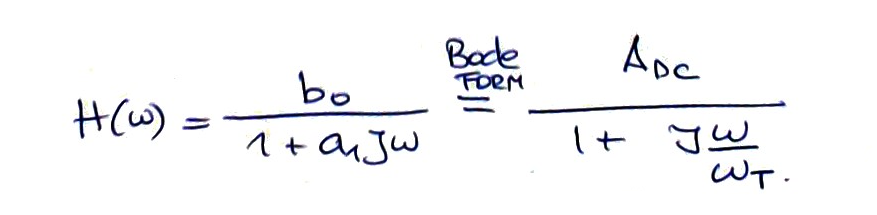 H(ω) = b₀ / (1 + a₁Jω) Bode FORM = A_DC / (1 + J ω/ω_T).